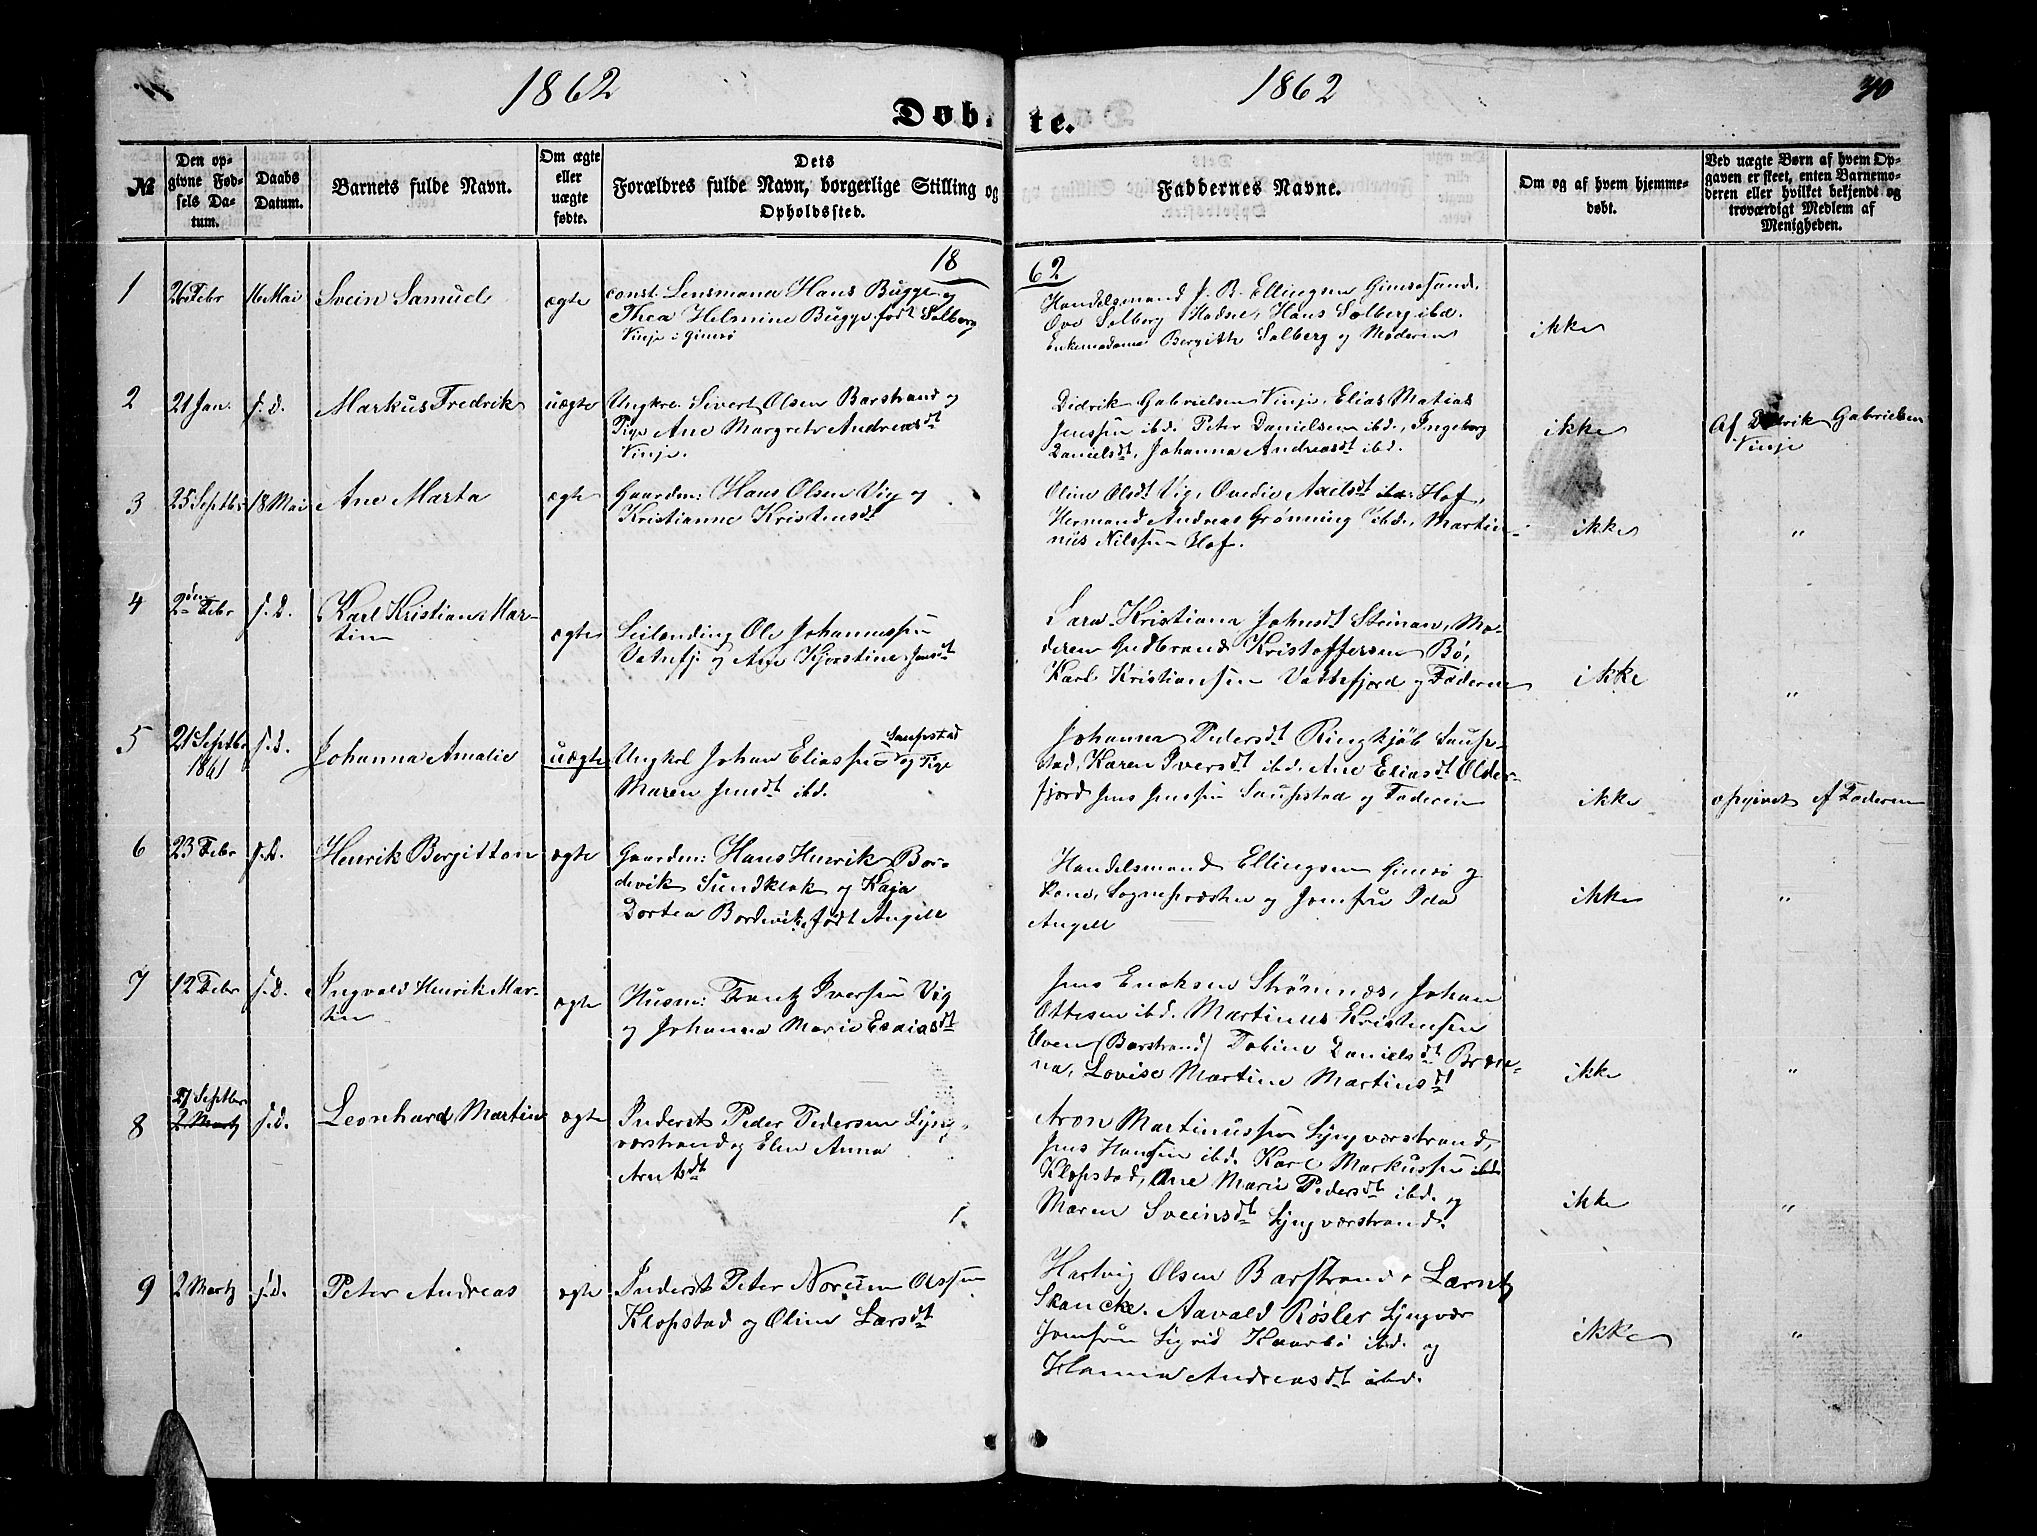 1862
1862
30
Døbte.
№
Den opgivne Fødsels Datum.
Daabs Datum.
Barnets fulde Navn.
Om ægte eller uægte fødte.
Dets Forældres fulde Navn, borgerlige Stilling og Opholdssted.
Faddernes Navne.
Om og af hvem hjemmedøbt.
Ved uægte Børn af hvem Opgaven er skeet, enten Barnemoderen eller hvilket bekjendt og troværdigt Medlem af Menigheden.
18
62
1
26 Febr
16 Mai
Svein Samuel
ægte
const. Lensmand Hans Bugge og
Thea Helmine Bugge født Solberg
Vinje i Gimsø
Handelsmand J. B. Ellingsen Gimsøsund,
Ove Solberg Hadsel, Hans Solberg ibd.
Enkemadame Bergitte Solberg og Moderen
ikke
2
21 Jan.
s. d.
Markus Fredrik
uægte
Ungkrl Sivert Olsen Barstrand og
Pige Ane Margrete Andreasdt
Vinje.
Didrik Gabrielsen Vinje, Elias Matias
Jenssen ibd. Peter Danielsen ibd., Ingeborg
Danielsdt, Johanna Andreasdt ibd.
ikke
Af Didrik Gabrielsen
Vinje
3
25 Septbr
18 Mai
Ane Marta
ægte
Gaardm: Hans Olsen Vig og
Kristianne Kristensdt
Oline Olsdt Vig, Ovedie Axelsdt Hof,
Hermand Andreas Grønning ibd., Marti-
nus Nilssen Hof.
ikke
"
4
2den Febr
s. D.
Karl Kristian Mar-
tin
ægte
Leilending Ole Johannessen
Vatnfj. og Ane Kjerstine Jensdt
Sara Kristiana Johnsdt Steinan, Mo-
deren Gudbrand Kristoffersen Bø,
Karl Kristiansen Vattefjord og Faderen
ikke
"
5
21 Septbr
1861
s. d.
Johanna Amalie
uægte
Saupstad
Ungkrl Johan Eliassen og Pige
Maren Jensdt ibd.
Johanna Pedersdt Ringkjøb Saup-
stad, Karen Iversdt ibd. Ane Eliasdt Older-
fjord Jens Jenssen Saupstad og Faderen
ikke
opgivet af Faderen
6
23 Febr
s. d.
Henrik Bergitton
ægte
Gaardm: Hans Henrik Bor-
devik Sundklak og Kaja
Dortea Bordevik, født Angell
Handelsmand Ellingsen Gimsø og
Kone, Sognepræsten og Jomfru Ida
Angell
ikke
"
7
12 Febr
s. D.
Ingvald Henrik Mar-
tin
ægte
Husm: Frantz Iversen Vig
og Johanna Marie Esaiasdt
Jens Ericksen Strømnes, Johan
Ottesen ibd. Martinus Kristensen
Elven (Barstrand) Tobine Danielsdt Bræn-
na, Lovise Martine Martinsdt
ikke
"
8
27 Septbr
2 Martz
s. d.
Leonhard Martin
ægte
Inderst Peder Pedersen Lyng-
værstrand og Elen Anna
Arntsdt
Aron Martinussen Lyngværstrand,
Jens Hansen ibd. Karl Markussen
Klopstad, Ane Marie Pedersdt ibd. og
Maren Sveinsdt Lyngværstrand.
ikke
"
9
2 Martz
s. d.
Peter Andreas
ægte
Inderst Peter Norum Olssen
Klopstad og Oline Larsdt
Hartvig Olsen Barstrand, Lærntz
Skancke. Aavald Røsler Lyngvær
Jomfru Sigrid Kaarbø ibd. og
Hanna Andreasdt ibd.
ikke
"